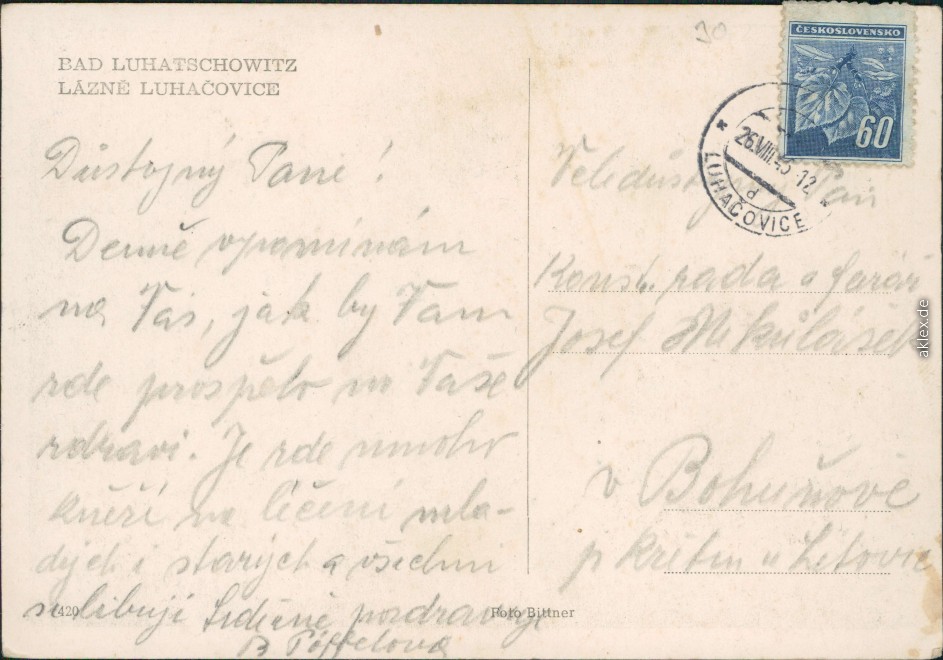 BAD LUHATSCHOWITZ
LÁZNĚ LUHAČOVICE
Důstojný Pane!
Denně vzpomínám
na Vás, jak by Vám
zde prospělo na Vaše
zdraví. Je zde mnoho
kněží na léčení mla-
dých i starých a všichni
si libují Srdečně pozdravuje
B
420
Foto Bittner
ČESKOSLOVENSKO
60
26.VIII.45-12
d
LUHAČOVICE
30
Veledůstojný Pan
Konst. rada a farář
Josef Mikulášek
v Bohuňově
p Křtěnov u Letovic
aklex.de